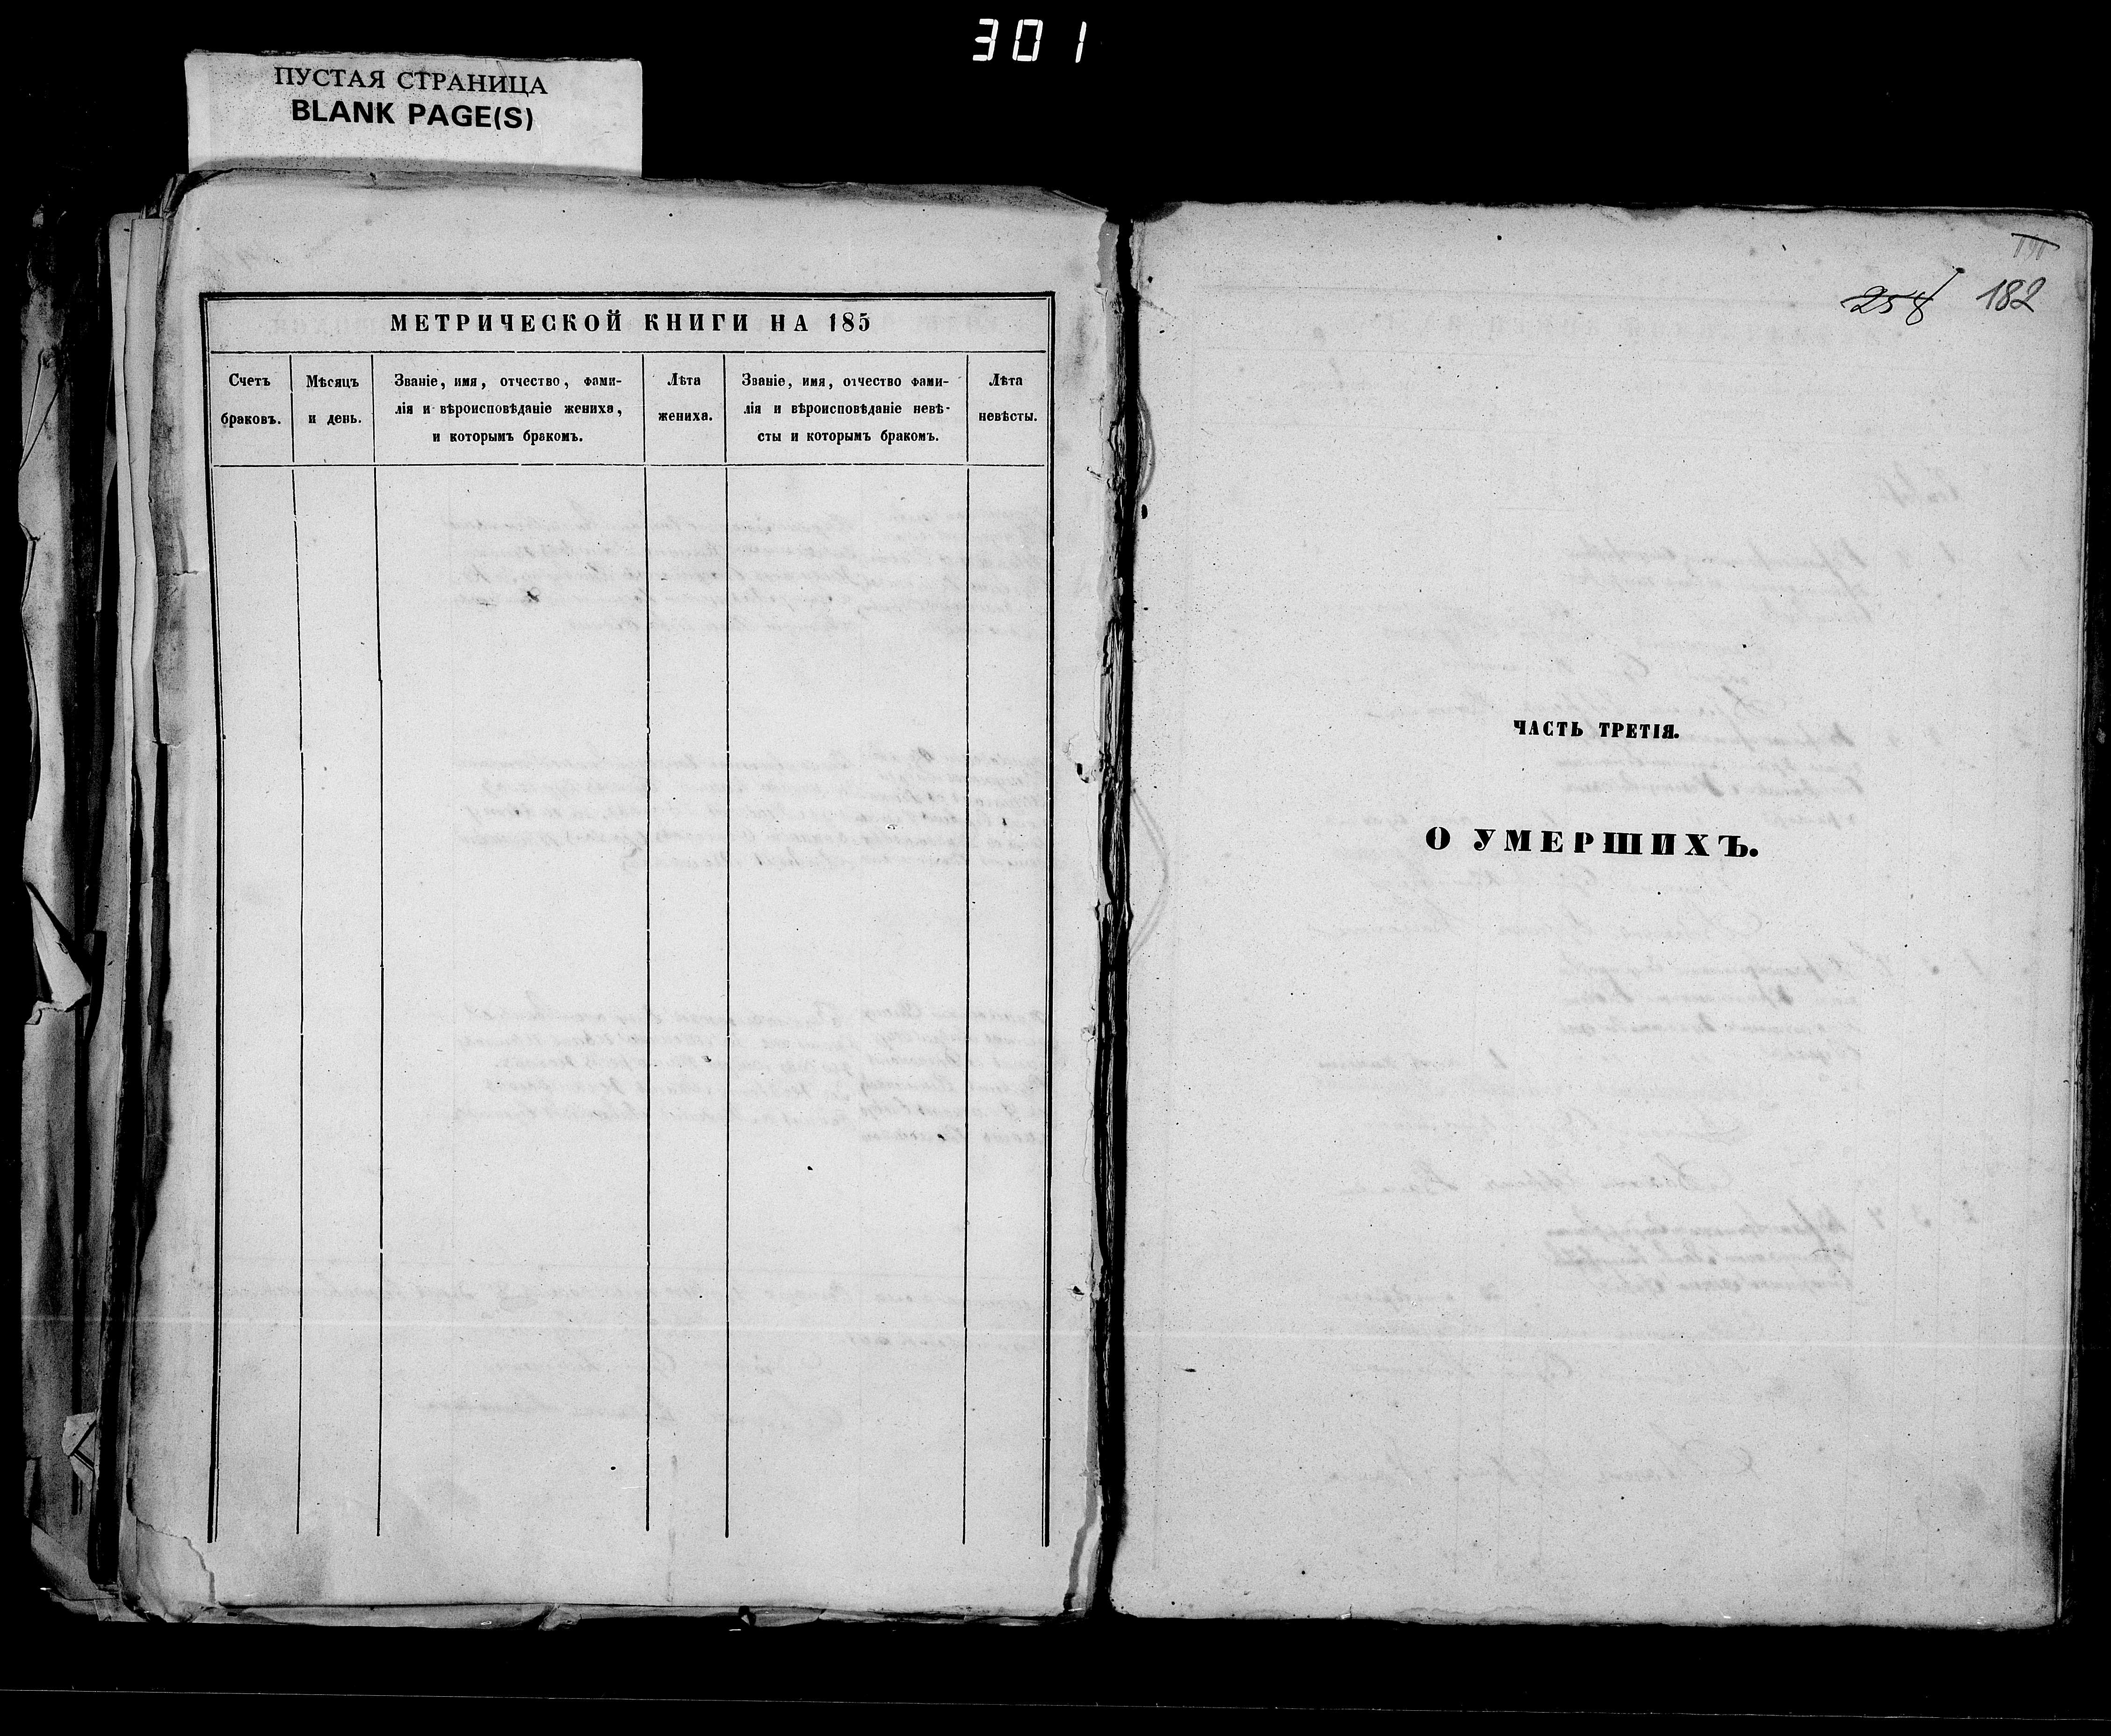 301
ПУСТАЯ СТРАНИЦА
BLANK PAGE(S)
МЕТРИЧЕСКОЙ КНИГИ НА 185
Счетъ
браковъ.
Мѣсяцъ
и день.
Званіе, имя, отчество, фами-
лія и вѣроисповѣданіе жениха,
и которымъ бракомъ.
Лѣта
жениха.
Званіе, имя, отчество фами-
лія и вѣроисповѣданіе невѣ-
сты и которымъ бракомъ.
Лѣта
невѣсты.
258 182
ЧАСТЬ ТРЕТІЯ.
О УМЕРШИХЪ.